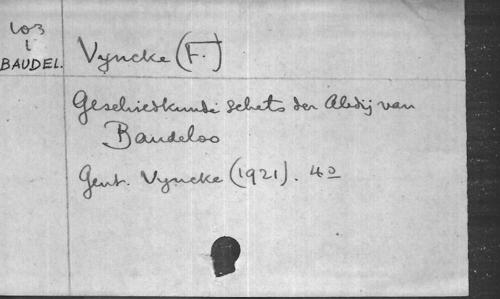 103
1
BAUDEL.
Vyncke (F.)
Geschiedkundi schets der Abdij van
Baudeloo
Gent. Vyncke (1921). 4º